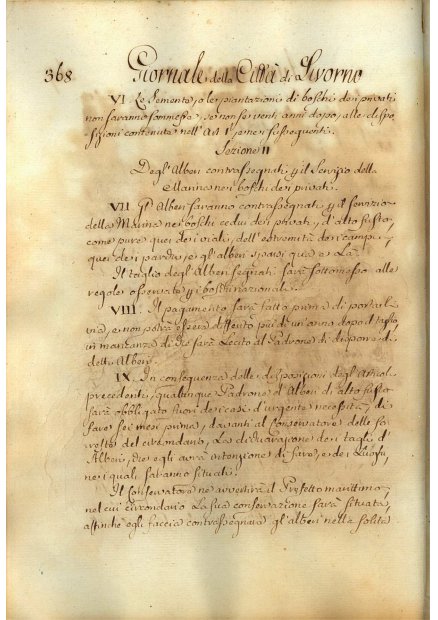 368 Giornale della Città di Livorno
VI. Le Semente, o le piantazioni di boschi dei privati
non saranno sommesse, se non se venti anni dopo, alle dispo,
sizioni contenute nell' Art. 1º, e nei susseguenti.
Sezione II
Degl' Alberi contrassegnati p il Servizio della
Marina nei boschi dei privati.
VII. Gl' Alberi saranno contrassegnati p il servizio
della Marina nei boschi cedui dei privati, d'alto fusto,
come pure quei dei viali, dell' estremità dei campi,
quei dei parchi, e gl' alberi sparsi qua e là.
Il taglio degl' Alberi segnati sarà sottomesso alle
regole osservate p i boschi nazionali.
VIII. Il pagamento sarà fatto prima di portarli
via, e non potrà essere differito più di un anno dopo il taglio,
in mancanza di che sarà lecito al Padrone di disporre di
detti Alberi.
IX. In conseguenza delle disposizioni degl' Articoli
precedenti, qualunque Padrone d' Alberi di alto fusto
sarà obbligato fuori dei casi d' urgente necessità, di
fare sei mesi prima, davanti al Conservatore delle fo,
reste del circondario, la dichiarazione dei tagli d'
Alberi, che egli avrà intenzione di fare, e dei Luoghi,
nei quali saranno situati.
Il Conservatore ne avvertirà il Prefetto marittimo,
nel cui circondario la sua conservazione sarà situata,
affinchè egli faccia contrassegnare gl' alberi nella solita